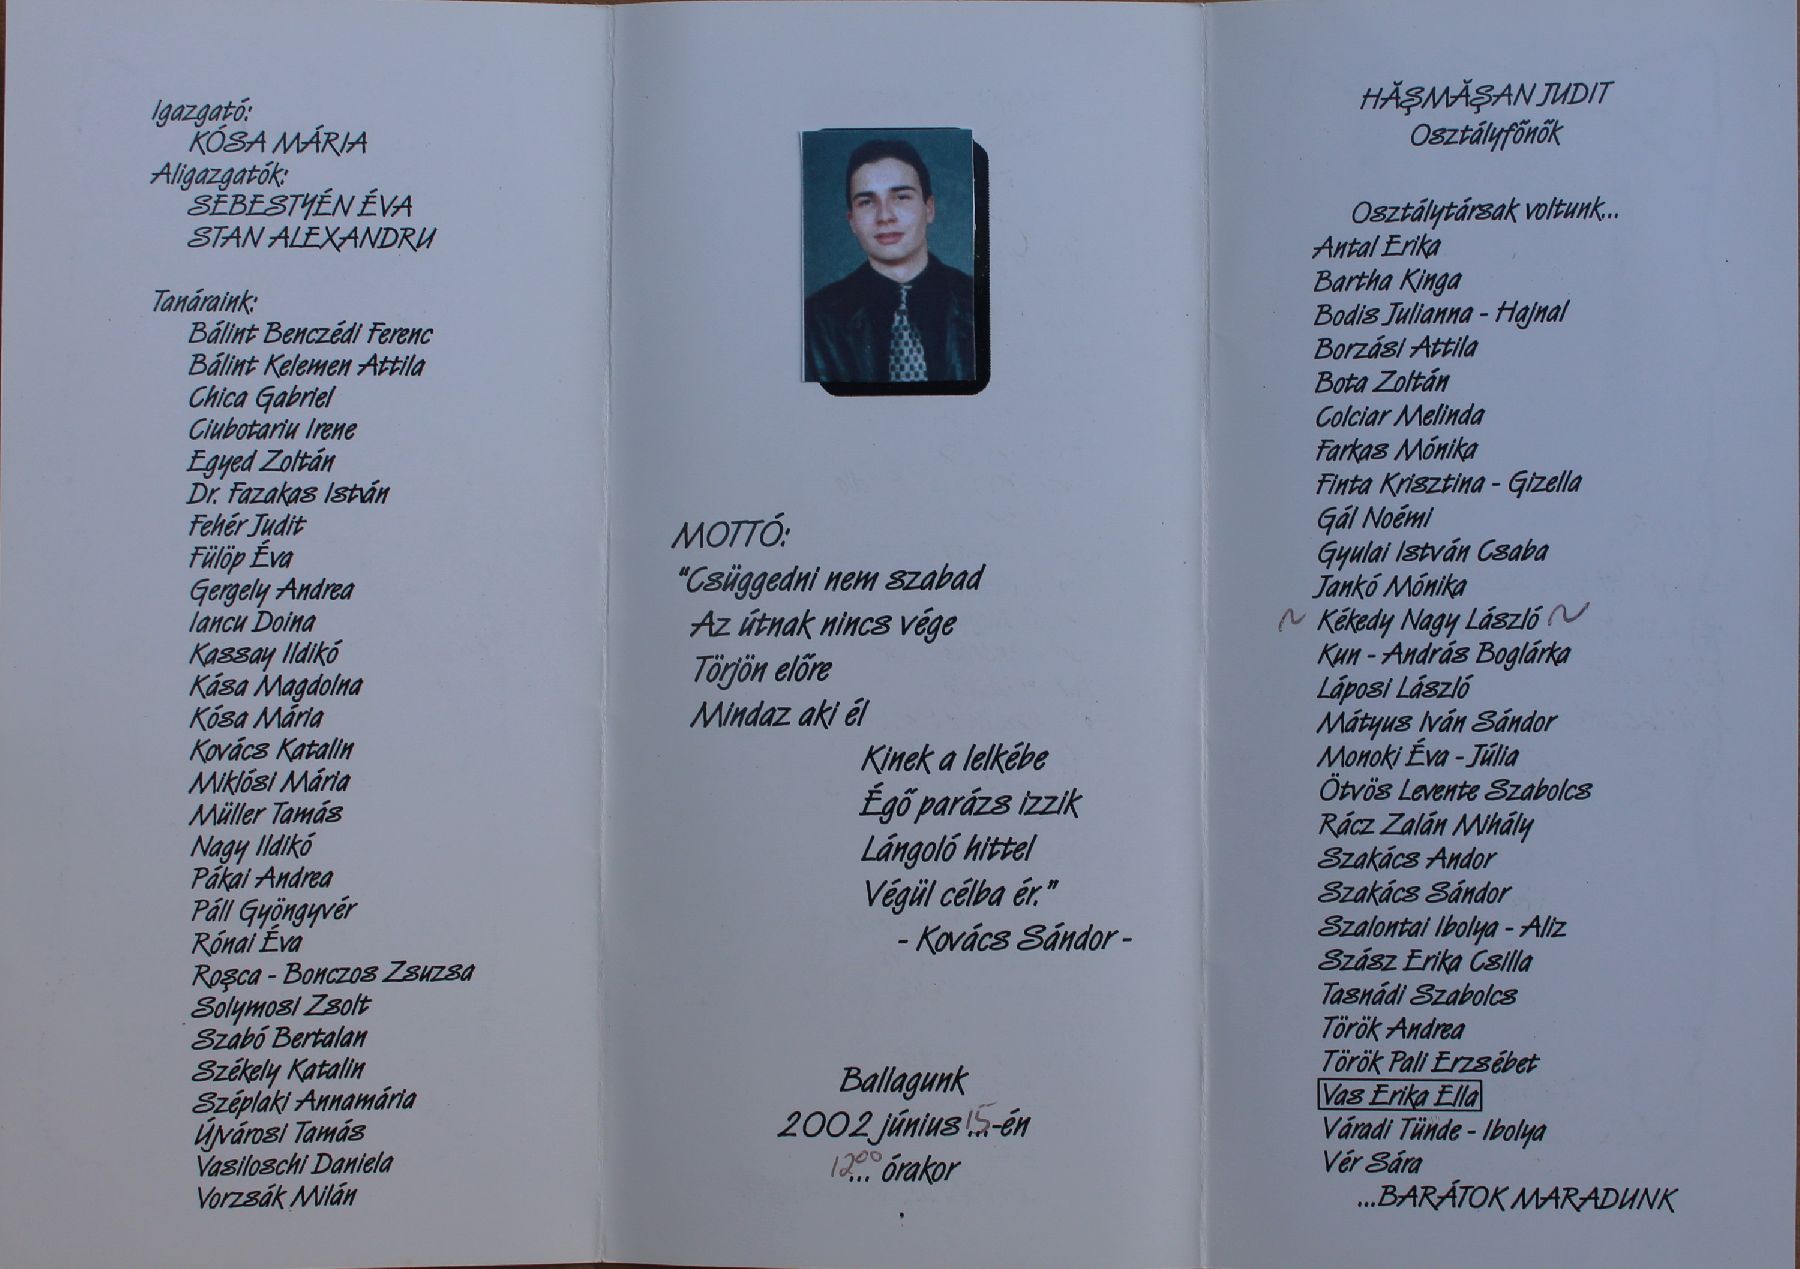 Igazgató:
KÓSA MÁRIA
Aligazgatók:
SEBESTYÉN ÉVA
STAN ALEXANDRU
Tanáraink:
Bálint Benczédi Ferenc
Bálint Kelemen Attila
Chica Gabriel
Ciubotariu Irene
Egyed Zoltán
Dr. Fazakas István
Fehér Judit
Fülöp Éva
Gergely Andrea
Iancu Doina
Kassay Ildikó
Kása Magdolna
Kósa Mária
Kovács Katalin
Miklósi Mária
Müller Tamás
Nagy Ildikó
Pákai Andrea
Páll Gyöngyvér
Rónai Éva
Roşca - Bonczos Zsuzsa
Solymosi Zsolt
Szabó Bertalan
Székely Katalin
Széplaki Annamária
Újvárosi Tamás
Vasiloschi Daniela
Vorzsák Milán
MOTTÓ:
"Csüggedni nem szabad
Az útnak nincs vége
Törjön előre
Mindaz aki él
Kinek a lelkébe
Égő parázs izzik
Lángoló hittel
Végül célba ér."
- Kovács Sándor -
Ballagunk
2002 június 15...-én
12⁰⁰... órakor
HĂŞMĂŞAN JUDIT
Osztályfőnök
Osztálytársak voltunk...
Antal Erika
Bartha Kinga
Bodis Julianna - Hajnal
Borzási Attila
Bota Zoltán
Colciar Melinda
Farkas Mónika
Finta Krisztina - Gizella
Gál Noémi
Gyulai István Csaba
Jankó Mónika
~ Kékedy Nagy László ~
Kun - András Boglárka
Láposi László
Mátyus Iván Sándor
Monoki Éva - Júlia
Ötvös Levente Szabolcs
Rácz Zalán Mihály
Szakács Andor
Szakács Sándor
Szalontai Ibolya - Aliz
Szász Erika Csilla
Tasnádi Szabolcs
Török Andrea
Török Pali Erzsébet
Vas Erika Ella
Váradi Tünde - Ibolya
Vér Sára
...BARÁTOK MARADUNK